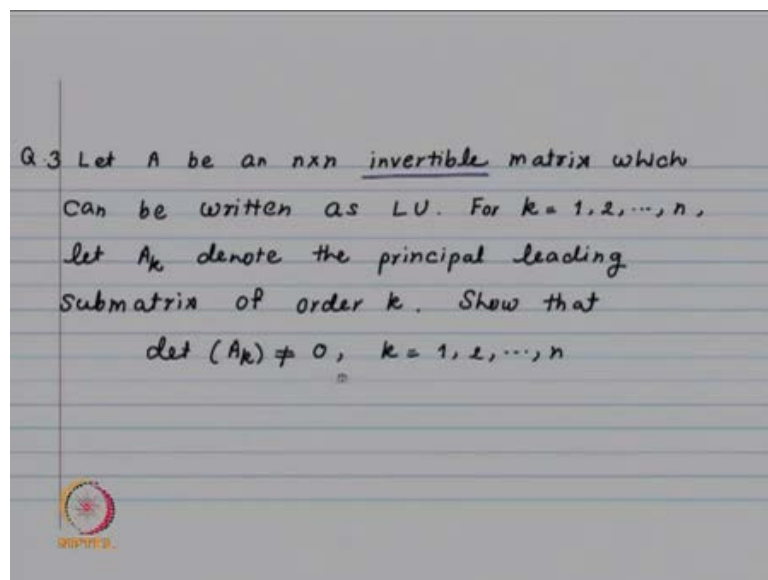 Q.3 Let A be an n×n invertible matrix which
can be written as LU. For k = 1, 2, ..., n,
let Aₖ denote the principal leading
submatrix of order k. Show that
det (Aₖ) ≠ 0, k = 1, 2, ..., n
NPTEL